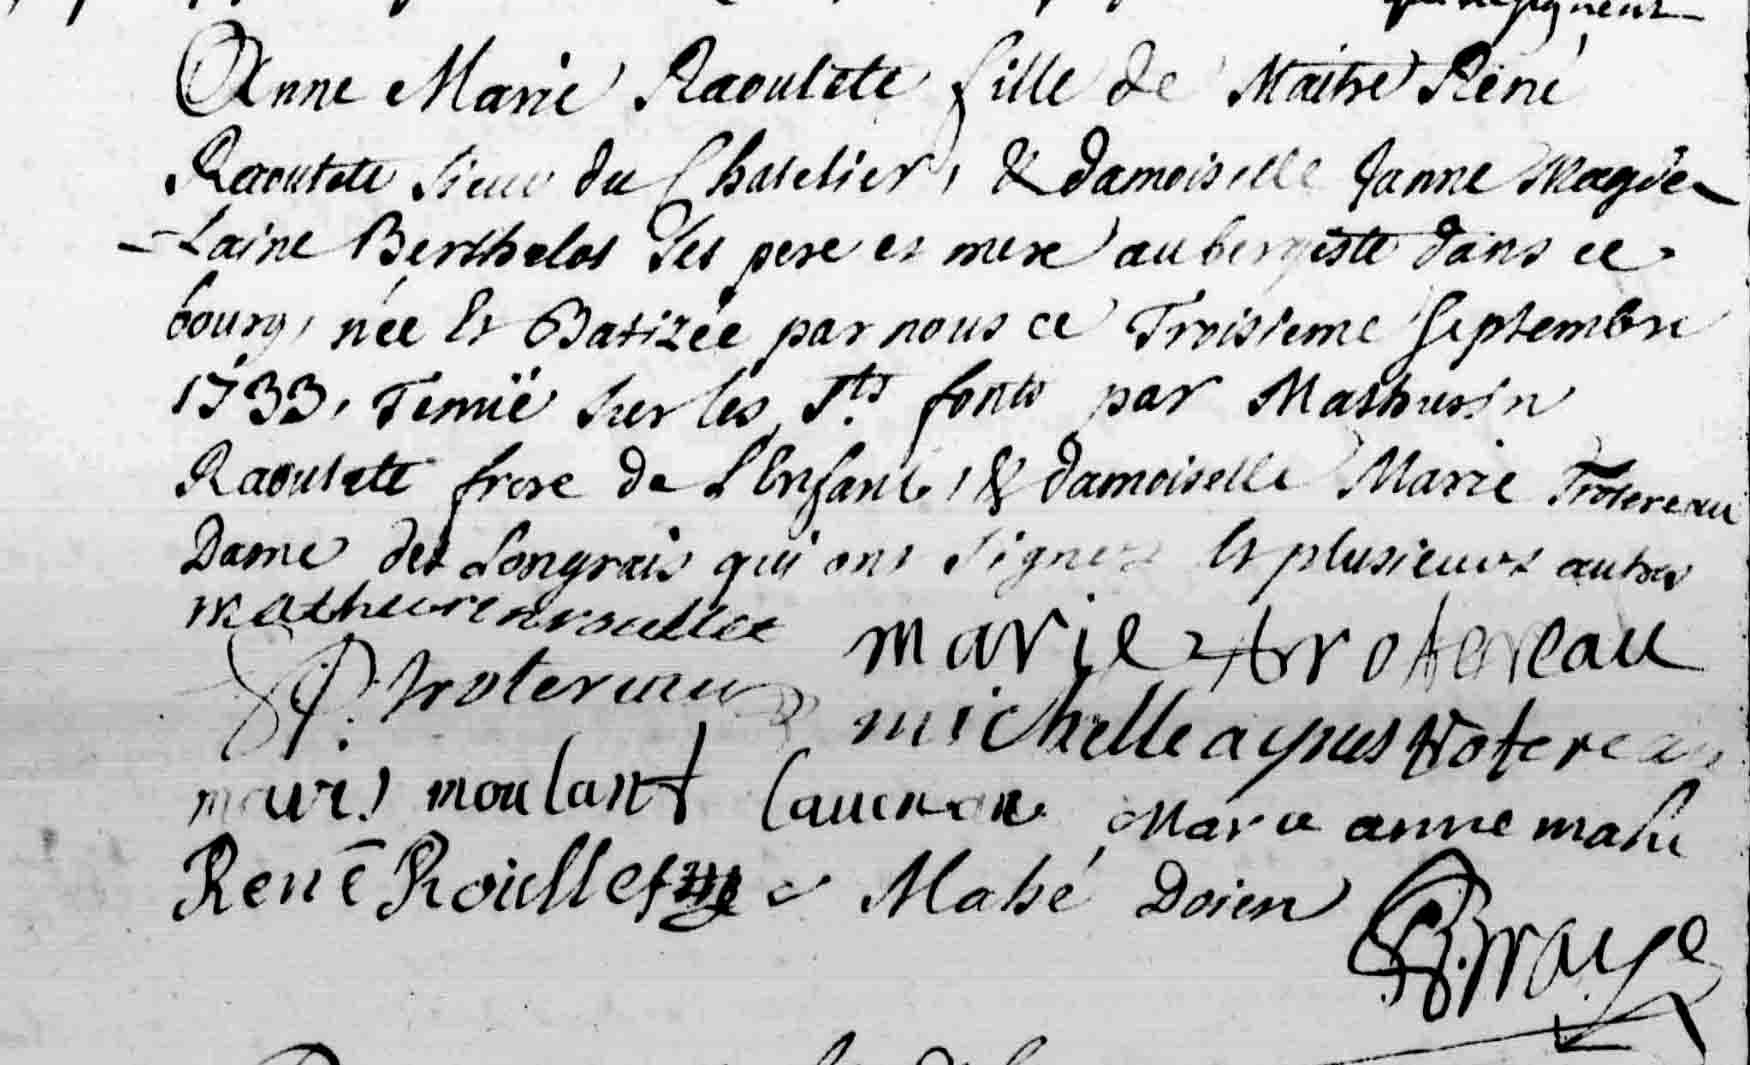 qui resignent
Anne Marie Raoulete fille de Maitre René
Raoulete Sieur du Chatelier, & damoiselle Janne Magde-
-Laine Berthelot Ses pere et mere aubergiste dans ce
bourg, née Et Batizée par nous ce Troisieme Septembre
1733, Tenüe Sur les Sts. fonts par Mathurin
Raoulete frere de L'Enfant, & damoiselle Marie Trotereau
Dame des Longrais qui ont Signez Et plusieurs autres
matheurin roullet
marie trotereau
P. trotereau
michelle agnes trotereau
moulart
Marie anne mahé
René Roüllet
Mahé Doien